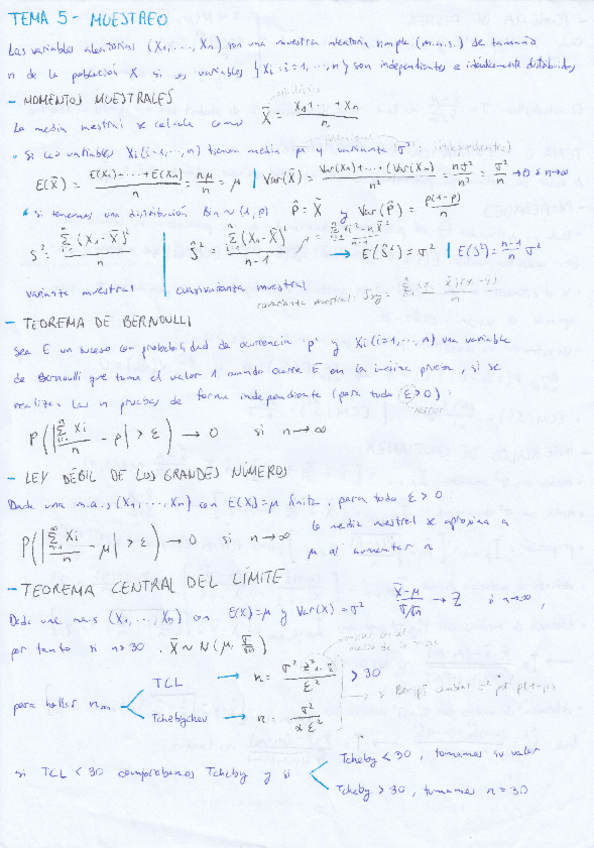 TEMA 5 - MUESTREO
Las variables aleatorias (X₁, ..., Xn) son una muestra aleatoria simple (m.a.s.) de tamaño
n de la población X si las variables {Xi : i=1, ..., n} son independientes e idénticamente distribuidas
- MOMENTOS MUESTRALES
La media mestral se calcula como X̄ = (X₁ + ... + Xn) / n
• Si las variables Xi (i=1, ..., n) tienen media μ y varianza σ² : (independientes)
E(X̄) = (E(X₁) + ... + E(Xn)) / n = nμ/n = μ | Var(X̄) = (Var(X₁) + ... + (Var(Xn)) / n² = nσ²/n² = σ²/n → 0 n→∞
• si tenemos una distribución Bin ~ (1, p) P̂ = X̄ y Var(P̂) = p(1-p)/n
S² = Σ (X₁ - X̄)² / n | Ŝ² = Σ (Xn - X̄)² / (n-1) → E(Ŝ²) = σ² | E(S²) = (n-1)/n σ²
varianza muestral cuasivarianza muestral
covarianza muestral:
- TEOREMA DE BERNOULLI
Sea E un suceso con probabilidad de ocurrencia p y Xi (i=1, ..., n) una variable
de Bernoulli que toma el valor 1 cuando ocurre E en la i-ésima prueba, si se
realizan las n pruebas de forma independiente (para todo ε>0) :
P(|Σ Xi / n - p| > ε) → 0 si n→∞
- LEY DÉBIL DE LOS GRANDES NÚMEROS
Dada una m.a.s (X₁, ..., Xn) con E(X)=μ finita, para todo ε > 0
P(|Σ Xi / n - μ| > ε) → 0 si n→∞ la media mestral se aproxima a
μ al aumentar n
- TEOREMA CENTRAL DEL LÍMITE
Dada una m.a.s (X₁, ..., Xn) con E(X)=μ y Var(X)=σ² (X̄-μ)/(σ/√n) → Z si n→∞,
por tanto si n>30. X̄ ~ N(μ, σ/√n)
TCL → n = σ² z²/ε² > 30
para hallar
Tchebychev → n = σ²/(α ε²)
si TCL < 30 comprobamos Tcheby y si
Tcheby < 30, tomamos su valor
Tcheby > 30, tomamos n = 30